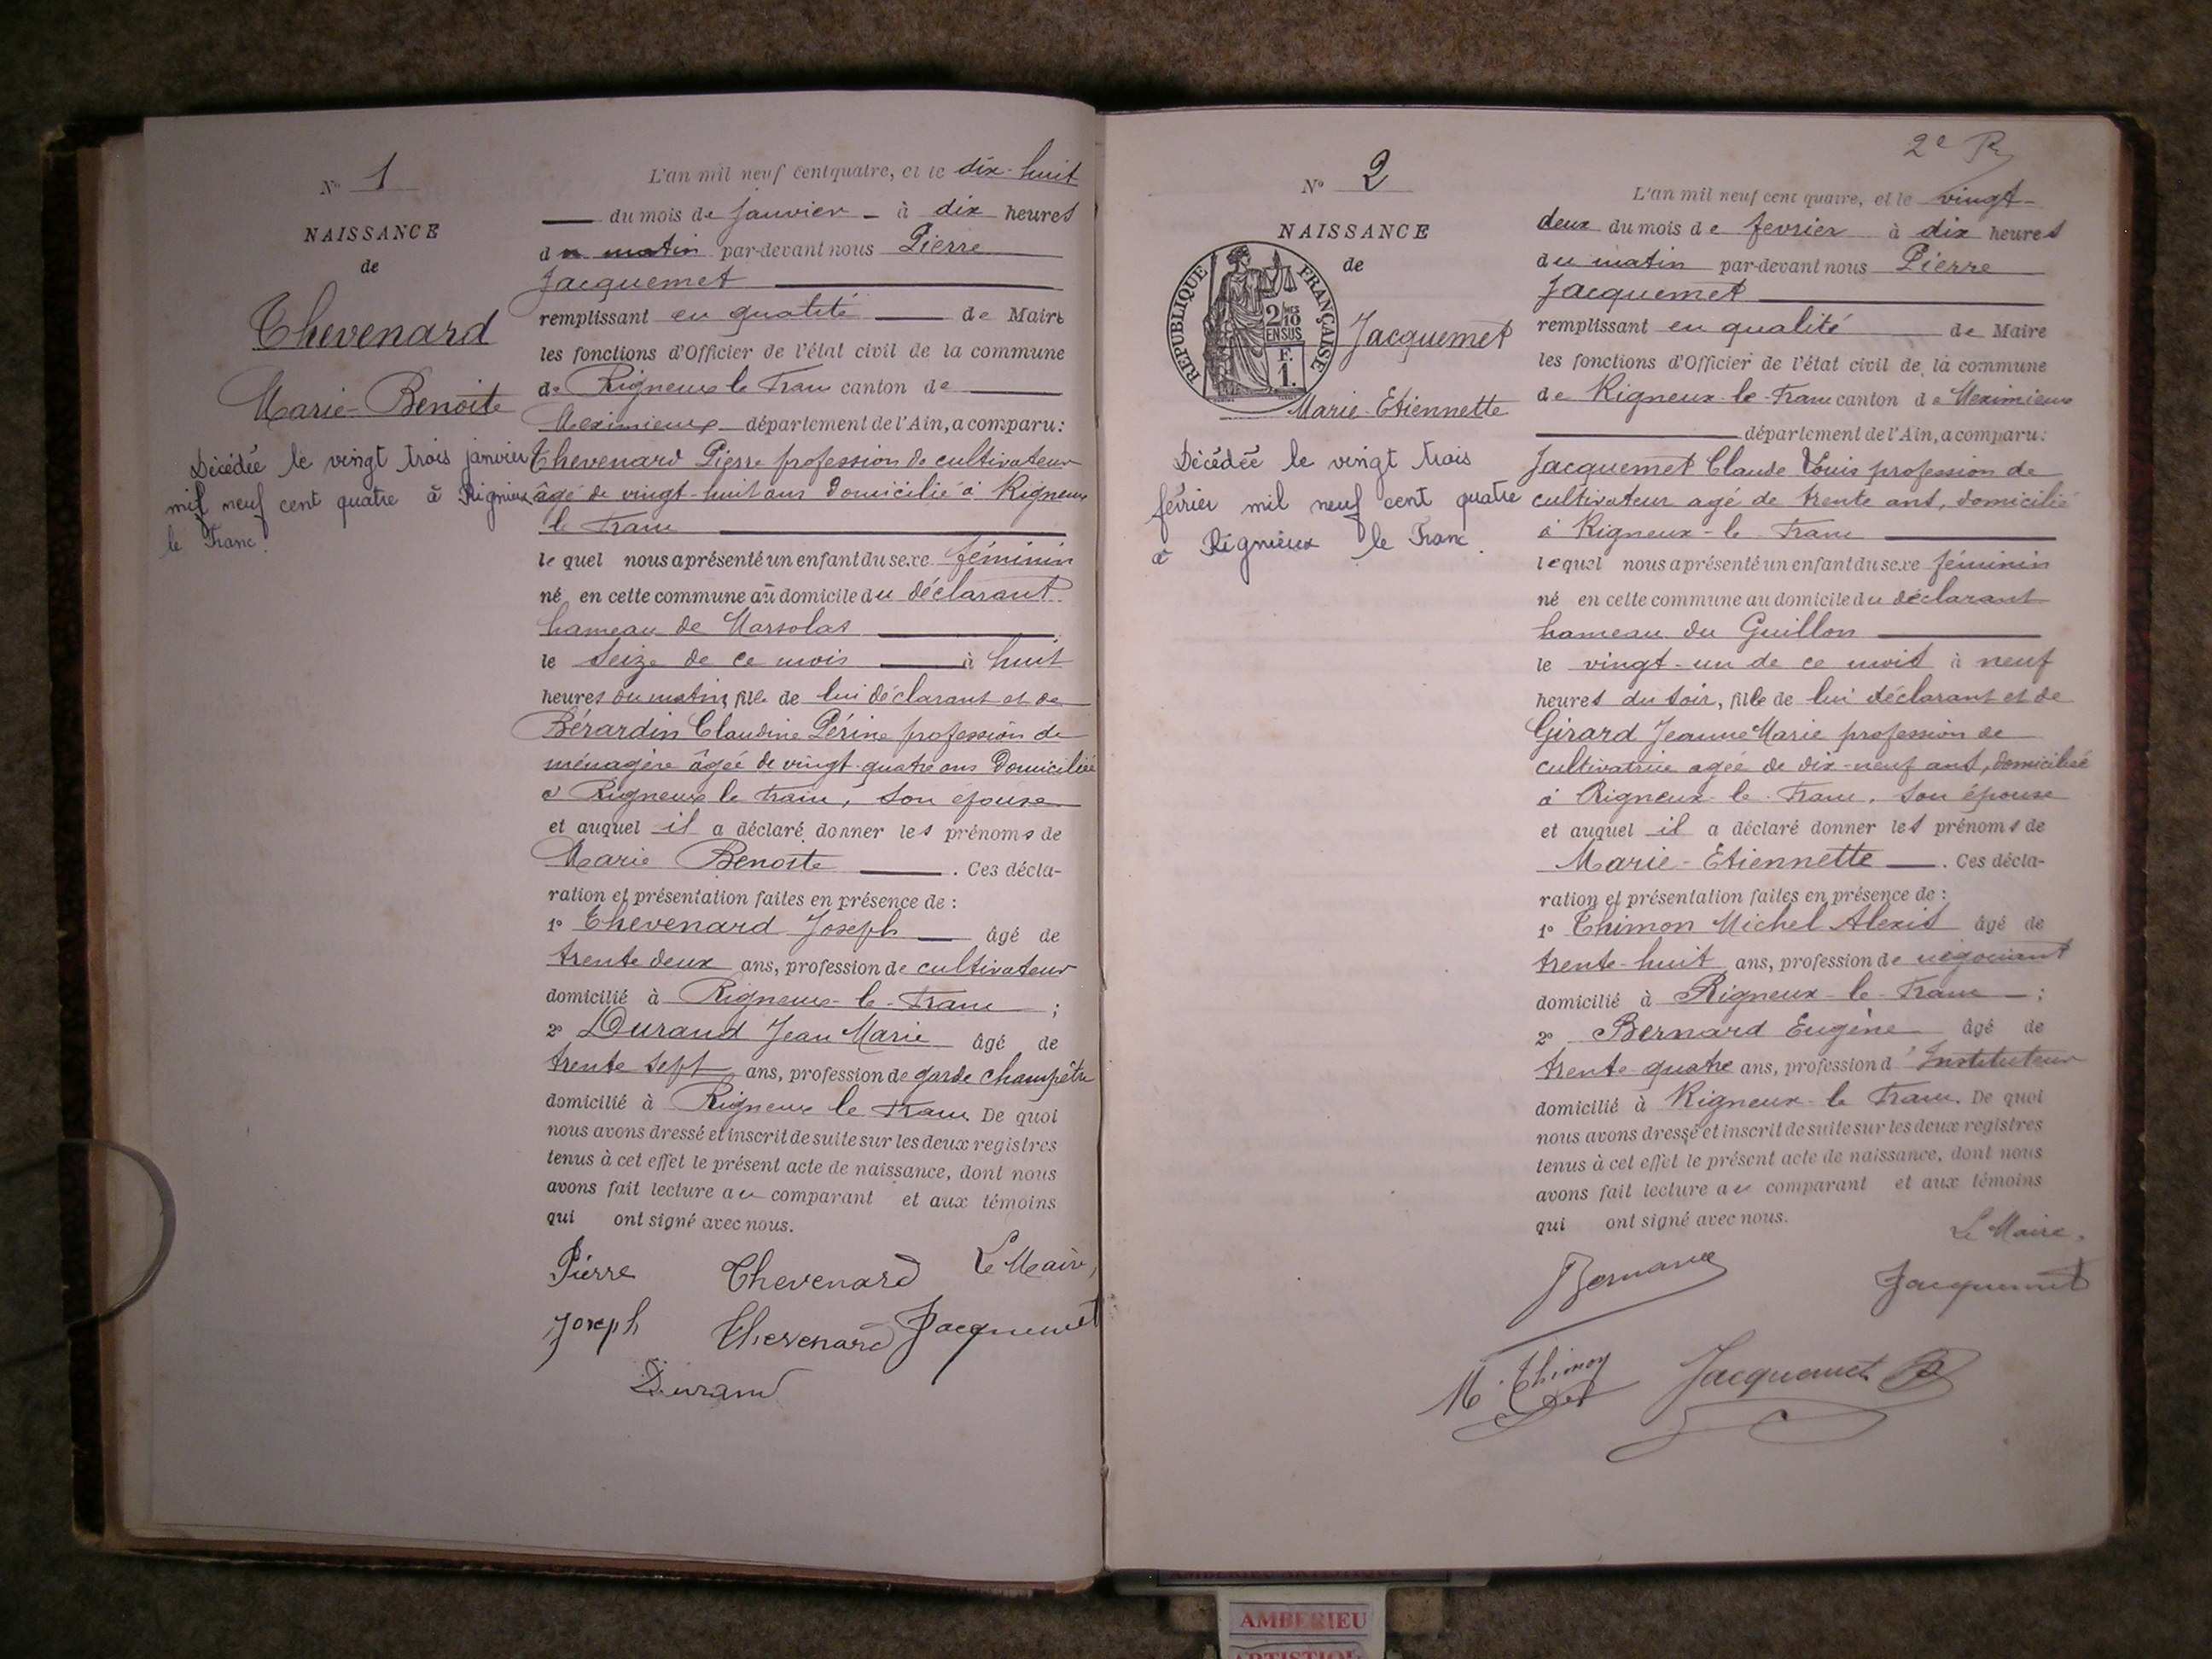 N° 1
NAISSANCE
de
Thevenard
Marie-Benoite
Décédée le vingt trois janvier
mil neuf cent quatre à Rignieux
le Franc.
L'an mil neuf cent quatre, et le dix-huit
du mois de Janvier - à dix heures
du matin par-devant nous Pierre
Jacquemet
remplissant en qualité de Maire
les fonctions d'Officier de l'état civil de la commune
de Rigneux le Franc canton de
Meximieux département de l'Ain, a comparu:
Thevenard Pierre profession de cultivateur
âgé de vingt-huit ans domicilié à Rigneux
le Franc
lequel nous a présenté un enfant du sexe féminin
né en cette commune au domicile du déclarant
hameau de Marsolas
le seize de ce mois à huit
heures du matin, fille de lui déclarant et de
Bérardin Claudine Périne profession de
ménagère âgée de vingt-quatre ans domiciliée
à Rigneux le Franc, son épouse
et auquel il a déclaré donner les prénoms de
Marie Benoite. Ces décla-
ration et présentation faites en présence de :
1° Thevenard Joseph âgé de
trente deux ans, profession de cultivateur
domicilié à Rigneux-le-Franc ;
2° Durand Jean Marie âgé de
trente sept ans, profession de garde champêtre
domicilié à Rigneux le Franc. De quoi
nous avons dressé et inscrit de suite sur les deux registres
tenus à cet effet le présent acte de naissance, dont nous
avons fait lecture au comparant et aux témoins
qui ont signé avec nous.
Pierre Thevenard Le Maire,
Joseph Thevenard Jacquemet
Durand
2e R
N° 2
NAISSANCE
de
RÉPUBLIQUE FRANÇAISE
2/10 MES
EN SUS
F.
1.
Jacquemet
Marie-Etiennette
Décédée le vingt trois
février mil neuf cent quatre
à Rignieux le Franc.
L'an mil neuf cent quatre, et le vingt-
deux du mois de fevrier à dix heures
du matin par-devant nous Pierre
Jacquemet
remplissant en qualité de Maire
les fonctions d'Officier de l'état civil de la commune
de Rigneux-le-Franc canton de Meximieux
département de l'Ain, a comparu:
Jacquemet Claude Louis profession de
cultivateur agé de trente ans, domicilié
à Rigneux-le-Franc
lequel nous a présenté un enfant du sexe féminin
né en cette commune au domicile du déclarant
hameau du Guillon
le vingt-un de ce mois à neuf
heures du soir, fille de lui déclarant et de
Girard Jeanne Marie profession de
cultivatrice agée de dix-neuf ans, domiciliée
à Rigneux-le-Franc, son épouse
et auquel il a déclaré donner les prénoms de
Marie-Etiennette. Ces décla-
ration et présentation faites en présence de :
1° Thimon Michel Alexis âgé de
trente-huit ans, profession de négociant
domicilié à Rigneux-le-Franc ;
2° Bernard Eugène âgé de
trente-quatre ans, profession d'Instituteur
domicilié à Rigneux-le Franc. De quoi
nous avons dressé et inscrit de suite sur les deux registres
tenus à cet effet le présent acte de naissance, dont nous
avons fait lecture au comparant et aux témoins
qui ont signé avec nous.
Le Maire,
Bernard Jacquemet
M. Thimon Jacquemet
AMBERIEU ARTISTIQUE
AMBERIEU
ARTISTIQU